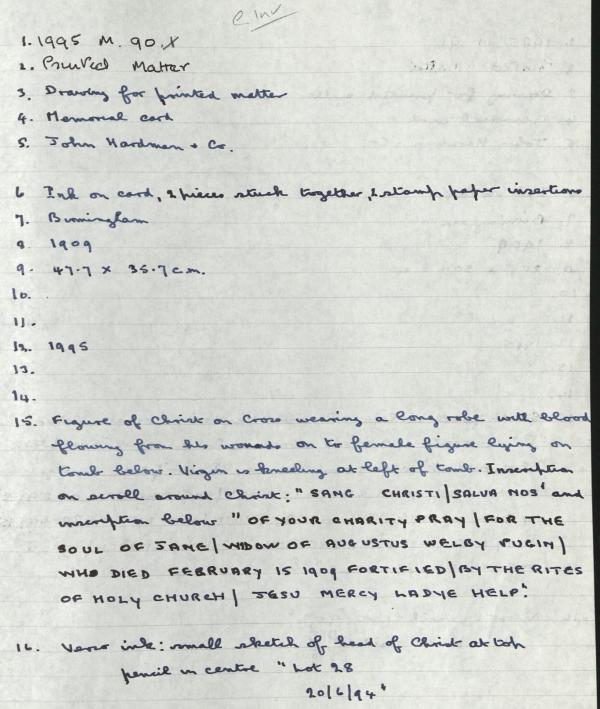 e Inv
1. 1995 M. 90. X
2. Printed Matter
3. Drawing for printed matter
4. Memorial card
5. John Hardman + Co.
6 Ink on card, 2 pieces stuck together, 2 stamp paper insertions
7. Birmingham
8. 1909
9. 47.7 x 35.7 cm.
10.
11.
12. 1995
13.
14.
15. Figure of Christ on Cross wearing a long robe with blood
flowing from his wounds on to female figure lying on
tomb below. Virgin is kneeling at left of tomb. Inscription
on scroll around Christ: "SANG CHRISTI/SALVA NOS" and
inscription below "OF YOUR CHARITY PRAY/FOR THE
SOUL OF JANE/WIDOW OF AUGUSTUS WELBY PUGIN/
WHO DIED FEBRUARY 15 1909 FORTIFIED/BY THE RITES
OF HOLY CHURCH/ JESU MERCY LADYE HELP."
16. Verso ink: small sketch of head of Christ at top
pencil in centre "Lot 28
20/6/94"